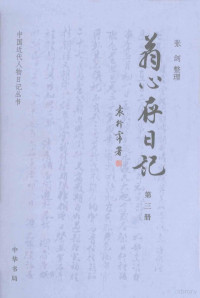 张剑 整理
翁心存日记
袁行霈署
第三册
中国近代人物日记丛书
中华书局